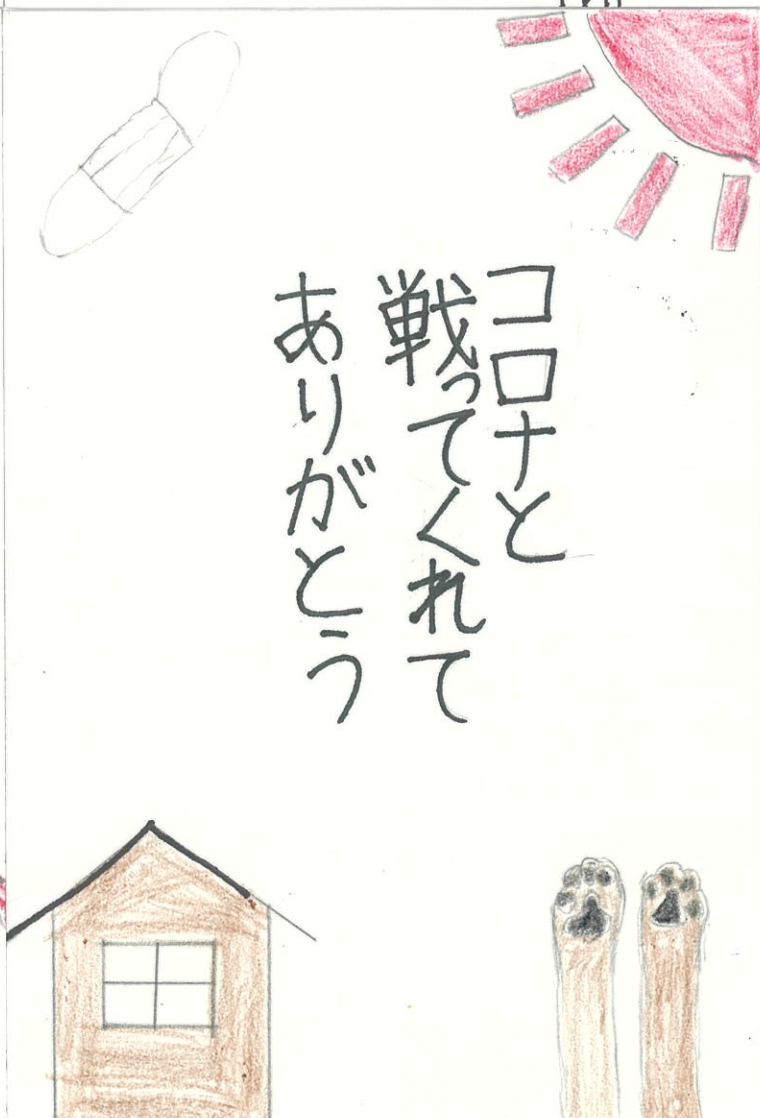 コロナと
戦ってくれて
ありがとう